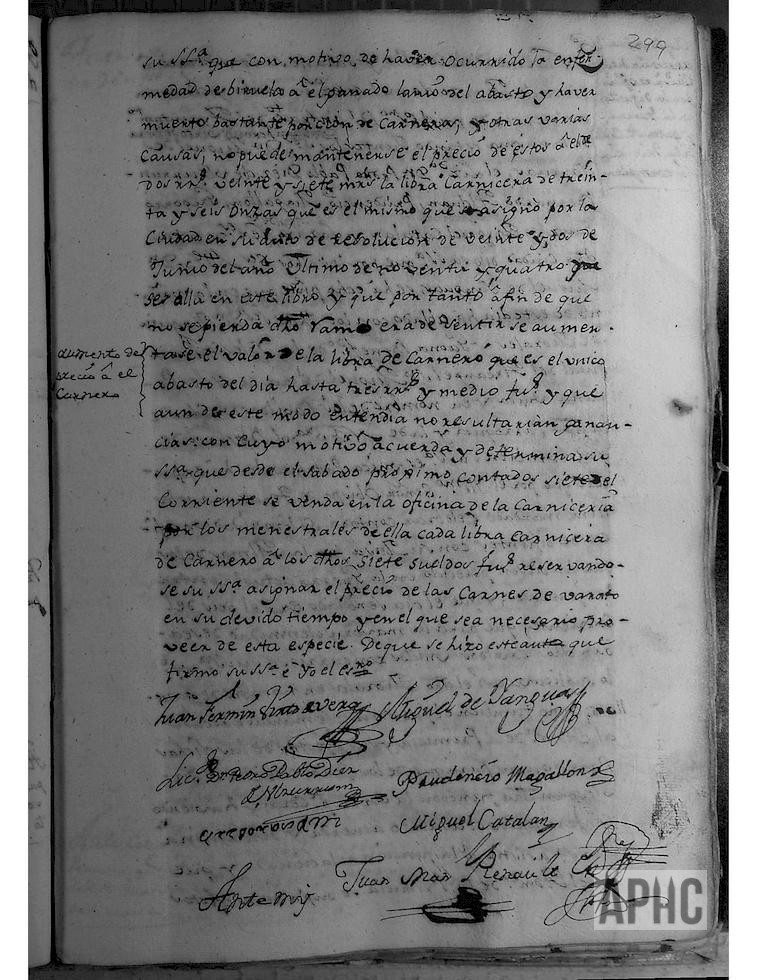 299
su Ssª que con motivo de haver ocurrido la enfer-
medad de biruela â el ganado lanio del abasto y haver
muerto bastante porcion de Carneros, y otras varias
Causas, no puede mantenerse el precio de estos â el de
dos rrˢ veinte y siete mrs la libra Carnicera de trein-
ta y seis onzas que es el mismo que se asignó por la
Ciudad en su auto de resolucion de veinte y dos de
Junio del año Ultimo de noventa y quatro que
se alla en este libro, y que por tanto â fin de que
no se pierda dho ramo era de sentir se aumen-
tase el valor de la libra de Carnero que es el unico
abasto del dia hasta tres rrˢ y medio fuˢ y que
aun de este modo entendia no resultarian ganan-
cias: con cuyo motivo acuerda y determina su
Ssª que desde el sabado proximo contados siete del
Corriente se venda en la oficina de la Carniceria
por los menestrales de ella cada libra carnicera
de Carnero â los dhos siete sueldos fuˢ reservando-
se su Ssª asignar el precio de las Carnes de varato
en su devido tiempo y en el que sea necesario pro-
veer de esta especie. De que se hizo este auto que
firmo su Ssª e Yo el esno
aumento de
precio â el
Carnero
Juan Fermin Miguel de Yanguas
Licdo Dn Pedro Pablo Diez
Prudencio Magallon
Miguel Catalan
Ante mi
Juan Man Renault
APHC